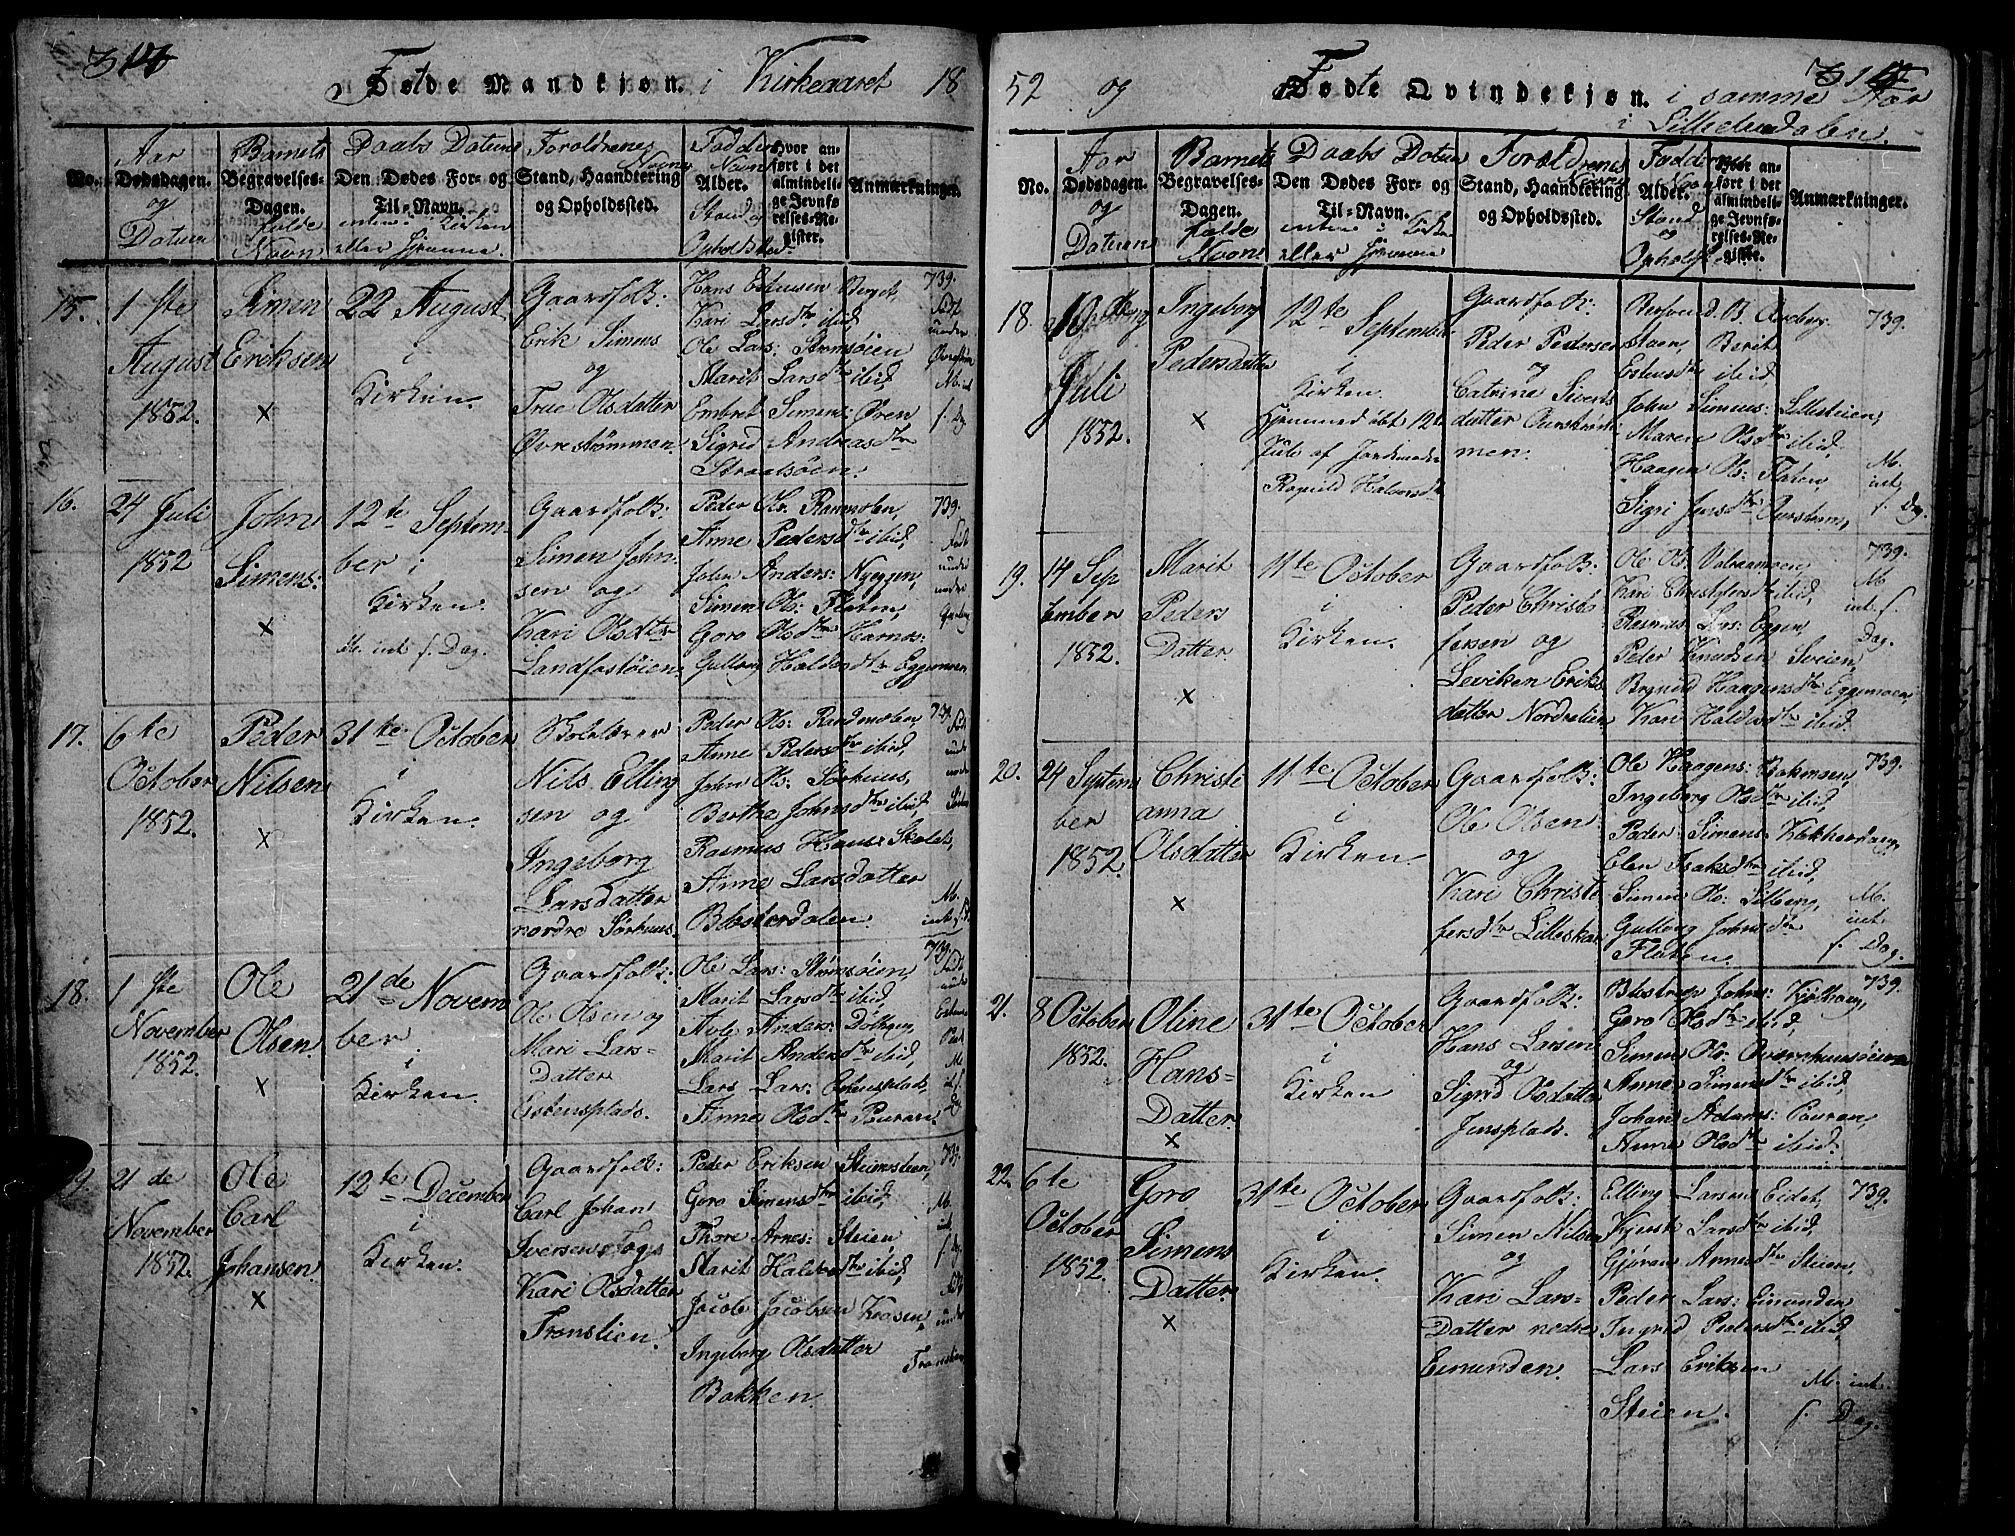 314
Fødte Mandkjøn. i Kirkeaaret 18
No.
Aar
Dødsdagen.
og
Datum
Barnets
Begravelses-
Dagen.
fulde
Navn
Daabs Datum
Den Dødes For- og
Til-Navn.
enten i Kirken
eller hjemme.
Forældrenes
Navne
Stand, Haandtering
og Opholdssted.
Fadder
Navn
Alder.
Stand og
Opholdsted.
Hvor an-
ført i det
almindeli-
ge Jevnfø-
relses-Re-
gister.
Anmærkninger.
15.
1ste
August
1852.
Simen
Eriksen
×
22 August
i
Kirken.
Gaardfolk:
Erik Simens
og
True Olsdatter
Øvrestømmen.
Hans Estensen Berget,
Kari Larsdtr ibid,
Ole Lars: Strømsøien
Marit Larsdtr ibid,
Embret Simens: Øren
Sigrid Andreasdtr
Straalsøen.
739.
Født
under
M. int
f. Dg
16.
24 Juli
1852
John
Simens:
×
12te Septem-
ber i
Kirken.
M. int f. Dag.
Gaardfolk:
Simen John-
sen og
Kari Olsdter
Landfastøien
Peder Ols: Ranmolen,
Anne Pedersdtr ibid,
John Anders: Nyeggen,
Simen Ols: Flaten,
Goro Olsdtr Harnos:
Gullaug Haldosdtr Eggemoen
739.
Født
under
17.
6te
October
1852.
Peder
Nilsen
×
31te October
i
Kirken.
Skolelærer
Nils Elling
sen og
Ingeborg
Larsdatter
nordre Sørhuus.
Peder Ols: Randmolen,
Anne Pedersdtr ibid,
John Ols: Sørhuus,
Berthe Johnsdtr ibid,
Rasmus Hans: Skolet,
Anne Larsdatter
Bubsterdalen.
739.
Født
under
M.
int. f. D.
18.
1ste
November
1852.
Ole
Olsen.
×
21de Novem
ber.
i
Kirken.
Gaardfolk:
Ole Olsen og
Mari Lars-
Datter
Estensplads.
Ole Lars: Strømsøien,
Marit Larsdtr ibid,
Avle Anders: Dølhaug,
Marit Andersdtr ibid,
Lars Lars: Estensplads,
Anne Olsdtr Pouran.
739.
Født
under
Estens
Pl.
M.
int f.
Dg
19.
21de
November
1852.
Ole
Carl
Johansen.
×
12te December
i
Kirken.
Gaardfolk:
Carl Johan
Iversen og
Kari Olsdatter
Trønslien.
Peder Eriksen Steimoeien,
Goro Simensdtr ibid,
Thore Arnes: Steien
Marit Haldosdtr ibid,
Jacob Jacobsen Kroken,
Ingeborg Olsdatter
Bakken.
739.
M.
int.
f. Dg.
Født
under
Trønslien
52 og Fødte Qvindekjøn. i samme Aar
i Lilleelvedalen.
315
No.
Aar
Dødsdagen.
og
Datum
Barnets
Begravelses-
Dagen.
fulde
Navn
Daabs Datum
Den Dødes For- og
Til-Navn.
enten i Kirken
eller hjemme
Forældrenes
Navne
Stand, Haandtering
og Opholdssted.
Fadder
Navn
Alder.
Stand
og
Opholdst.
Hvor an-
ført i det
almindeli-
ge Jevnfø-
relses-Re-
gister.
Anmærkninger.
18.
10de
Juli
1852.
Ingeborg
Pedersdatter
×
12te
September
i
Kirken.
Hjemmedøbt 12te
Juli af Jordemoder
Ragnild Halvorsdtr
Gaardfolk:
Peder Pedersen
og
Catrine Siverts
datter
men.
Berit
Estensdtr ibid,
John Simens: Lillesteien,
Maren Olsdtr ibid,
Haagen Ols: Flaten,
Sigri Jensdtr
739.
M.
int
f. Dg.
19.
14 Sep
tember
1852.
Marit
Peders
Datter.
×
11te October
i
Kirken.
Gaardfolk:
Peder Christo
fersen og
Leviken Eriks
datter Nordrelien
Ole Ols: Volraamoen,
Kari Christofersdtr ibid,
Rasmus Lars: Eggen,
Peder Knudsen Sveien,
Brynild Haagensdtr Eggemoen,
Kari Haldosdtr ibid.
739.
M
int. f.
Dag.
20.
24 Septem
ber
1852.
Christi
anna
Olsdatter
×
11te October
i
Kirken.
Gaardfolk:
Ole Olsen
og
Kari Christo
fersdtr Lilleskar
Ole Haagens: Bakmoen,
Ingeborg Olsdtr ibid,
Peder Simens: Kokkerhaug,
Elen Isaksdtr ibid,
Simen Ols: Lilberg,
Gullaug Johnsdtr
Flaten.
739.
M.
int.
f. Dag.
21.
8 October
1852.
Oline
Hans-
Datter.
×
31te October
i
Kirken
Gaardfolk:
Hans Larsen
og
Sigrid Olsdatter
Jensplads.
Johns: Kjølhaug,
Goro Olsdtr ibid,
Simen Ols:
Anne Simensdtr ibid,
Johan Adams: Pouran,
Anne Olsdtr ibid.
739.
22.
6te
October
1852.
Goro
Simens
Datter
×
31te October
i
Kirken.
Gaardfolk:
Simen Nilsen
og
Kari Lars-
Datter nedre
Eimunden.
Elling Larsens Eidet,
Kjersti Larsdtr ibid,
Gjøran Arnesdtr Steien
Peder Lars: Eimunden
Ingrid Pedersdtr ibid,
Lars Eriksen
Steien.
739.
M. int.
f. Dag.